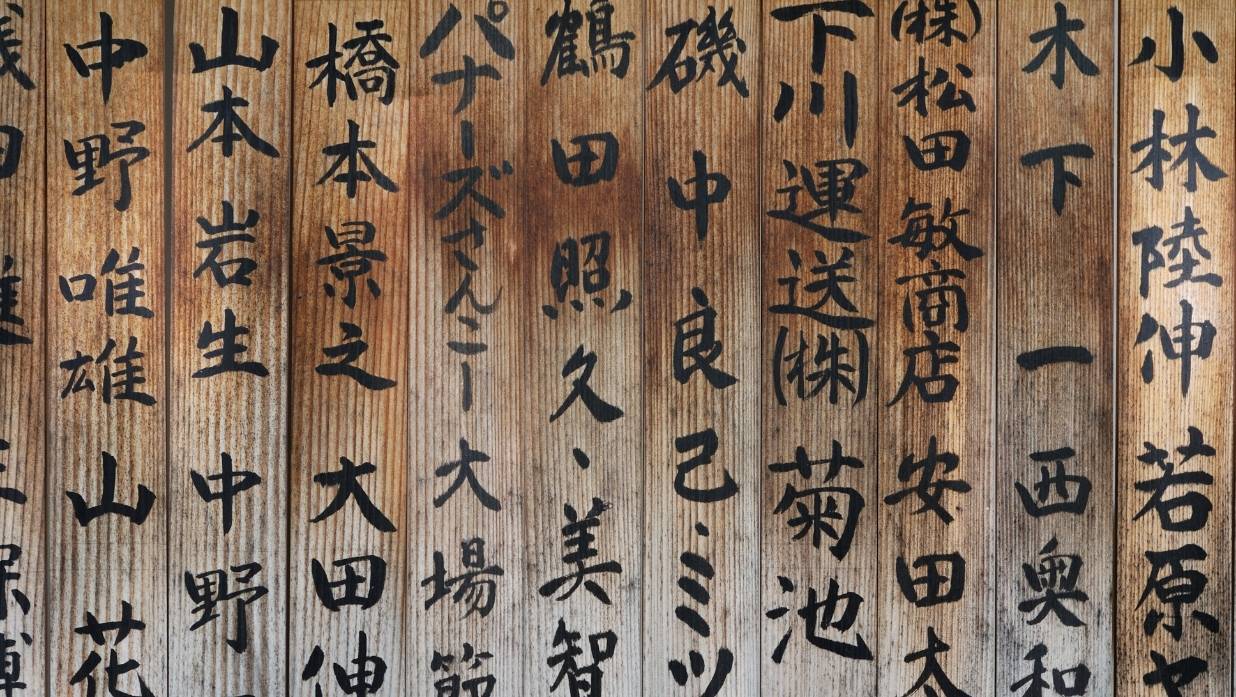 小林陸伸 若原
木下 一 西奥和
(株)松田敏商店 安田太
下川運送(株) 菊池
磯中良己・ミツ
鶴田照久、美智
パナーズさんこー 大場節
橋本景之 大田伸
山本岩生 中野
中野唯雄 山花